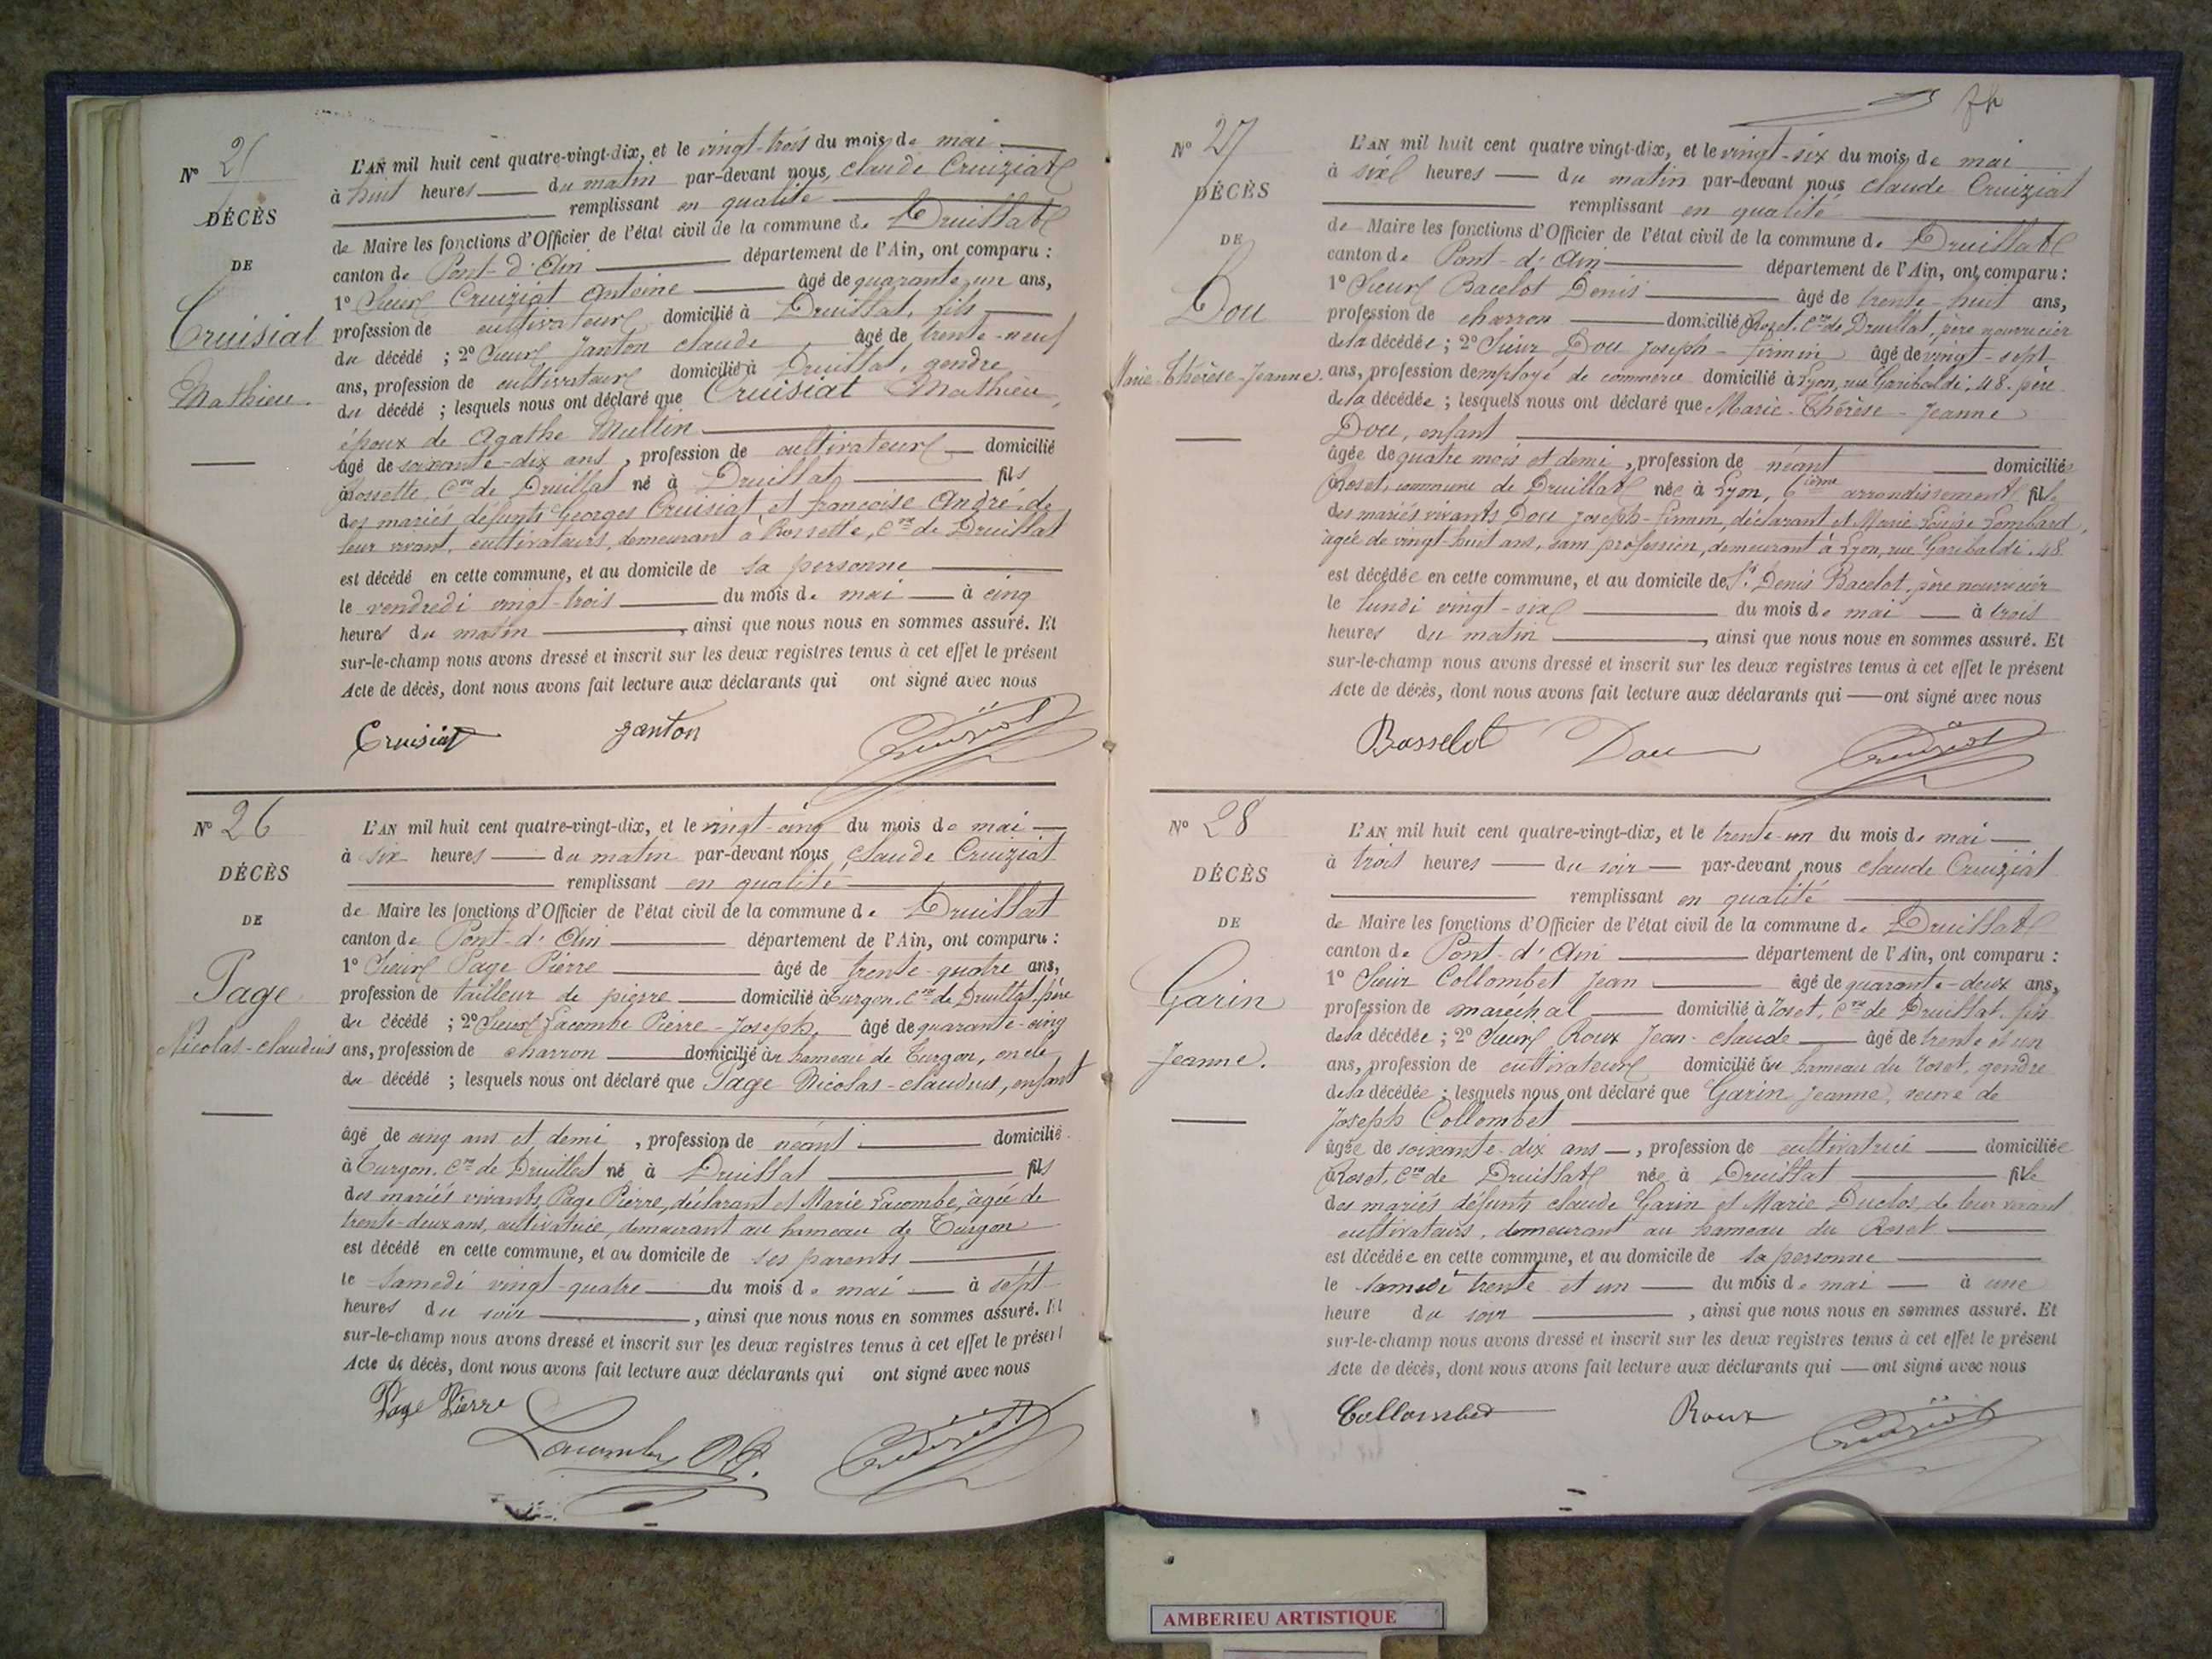 N° 25
DÉCÈS
DE
Cruisiat
Mathieu.
L'AN mil huit cent quatre-vingt-dix, et le vingt-trois du mois de mai
à huit heures du matin par-devant nous, Claude Cruiziat
remplissant en qualité
de Maire les fonctions d'Officier de l'état civil de la commune de Druillat
canton de Pont-d'Ain département de l'Ain, ont comparu :
1° Sieur Cruiziat Antoine âgé de quarante un ans,
profession de cultivateur domicilié à Druillat, fils
du décédé ; 2° Sieur Janton Claude âgé de trente-neuf
ans, profession de cultivateur domicilié à Druillat, gendre
du décédé ; lesquels nous ont déclaré que Cruisiat Mathieu,
époux de Agathe Mullin
âgé de soixante-dix ans, profession de cultivateur domicilié
à Rossette, Cne de Druillat né à Druillat fils
des mariés défunts Georges Cruisiat et Françoise André, de
leur vivant, cultivateurs, demeurant à Rossette, Cne de Druillat
est décédé en cette commune, et au domicile de sa personne
le vendredi vingt-trois du mois de mai à cinq
heures du matin, ainsi que nous nous en sommes assuré. Et
sur-le-champ nous avons dressé et inscrit sur les deux registres tenus à cet effet le présent
Acte de décès, dont nous avons fait lecture aux déclarants qui ont signé avec nous
Cruisiat Janton Cruiziat
N° 26
DÉCÈS
DE
Page
Nicolas-Claudius
L'AN mil huit cent quatre-vingt-dix, et le vingt-cinq du mois de mai
à six heures du matin par-devant nous, Claude Cruiziat
remplissant en qualité
de Maire les fonctions d'Officier de l'état civil de la commune de Druillat
canton de Pont-d'Ain département de l'Ain, ont comparu :
1° Sieur Page Pierre âgé de trente-quatre ans,
profession de tailleur de pierre domicilié à Turgon, Cne de Druillat, père
du décédé ; 2° Sieur Lacombe Pierre-Joseph, âgé de quarante-cinq
ans, profession de charron domicilié au hameau de Turgon, oncle
du décédé ; lesquels nous ont déclaré que Page Nicolas-Claudius, enfant
âgé de cinq ans et demi, profession de néant domicilié
à Turgon, Cne de Druillat né à Druillat fils
des mariés vivants, Page Pierre, déclarant et Marie Lacombe, âgée de
trente-deux ans, cultivatrice, demeurant au hameau de Turgon
est décédé en cette commune, et au domicile de ses parents
le samedi vingt-quatre du mois de mai à sept
heures du soir, ainsi que nous nous en sommes assuré. Et
sur-le-champ nous avons dressé et inscrit sur les deux registres tenus à cet effet le présent
Acte de décès, dont nous avons fait lecture aux déclarants qui ont signé avec nous
Page Pierre
Lacombe Cruiziat
N° 27
DÉCÈS
DE
Dou
Marie-Thérèse-Jeanne.
L'AN mil huit cent quatre vingt-dix, et le vingt-six du mois de mai
à six heures du matin par-devant nous Claude Cruiziat
remplissant en qualité
de Maire les fonctions d'Officier de l'état civil de la commune de Druillat
canton de Pont-d'Ain département de l'Ain, ont comparu :
1° Sieur Bacelot Denis âgé de trente-huit ans,
profession de charron domicilié à Roset, Cne de Druillat, père nourricier
de la décédée ; 2° Sieur Dou Joseph-Firmin âgé de vingt-sept
ans, profession d'employé de commerce domicilié à Lyon, rue Garibaldi, 48, père
de la décédée ; lesquels nous ont déclaré que Marie-Thérèse-Jeanne
Dou, enfant
âgée de quatre mois et demi, profession de néant domiciliée
à Roset, commune de Druillat née à Lyon, 6ième arrondissement, fille
des mariés vivants Dou Joseph-Firmin, déclarant et Marie Louise Lombard,
âgée de vingt-huit ans, sans profession, demeurant à Lyon, rue Garibaldi, 48
est décédée en cette commune, et au domicile de Sr Denis Bacelot, père nourricier
le lundi vingt-six du mois de mai à trois
heures du matin, ainsi que nous nous en sommes assuré. Et
sur-le-champ nous avons dressé et inscrit sur les deux registres tenus à cet effet le présent
Acte de décès, dont nous avons fait lecture aux déclarants qui ont signé avec nous
Bosselot Dou Cruiziat
N° 28
DÉCÈS
DE
Garin
Jeanne.
L'AN mil huit cent quatre-vingt-dix, et le trente-un du mois de mai
à trois heures du soir par-devant nous Claude Cruiziat
remplissant en qualité
de Maire les fonctions d'Officier de l'état civil de la commune de Druillat
canton de Pont-d'Ain département de l'Ain, ont comparu :
1° Sieur Collombet Jean âgé de quarante-deux ans,
profession de maréchal domicilié à Roset, Cne de Druillat, fils
de la décédée ; 2° Sieur Roux Jean-Claude âgé de trente et un
ans, profession de cultivateur domicilié au hameau du Roset, gendre
de la décédée ; lesquels nous ont déclaré que Garin Jeanne, veuve de
Joseph Collombet
âgée de soixante-dix ans, profession de cultivatrice domiciliée
à Roset, Cne de Druillat née à Druillat fille
des mariés défunts Claude Garin et Marie Duclos, de leur vivant
cultivateurs, demeurant au hameau du Roset
est décédée en cette commune, et au domicile de sa personne
le samedi trente et un du mois de mai à une
heure du soir, ainsi que nous nous en sommes assuré. Et
sur-le-champ nous avons dressé et inscrit sur les deux registres tenus à cet effet le présent
Acte de décès, dont nous avons fait lecture aux déclarants qui ont signé avec nous
Collombet Roux Cruiziat
AMBERIEU ARTISTIQUE